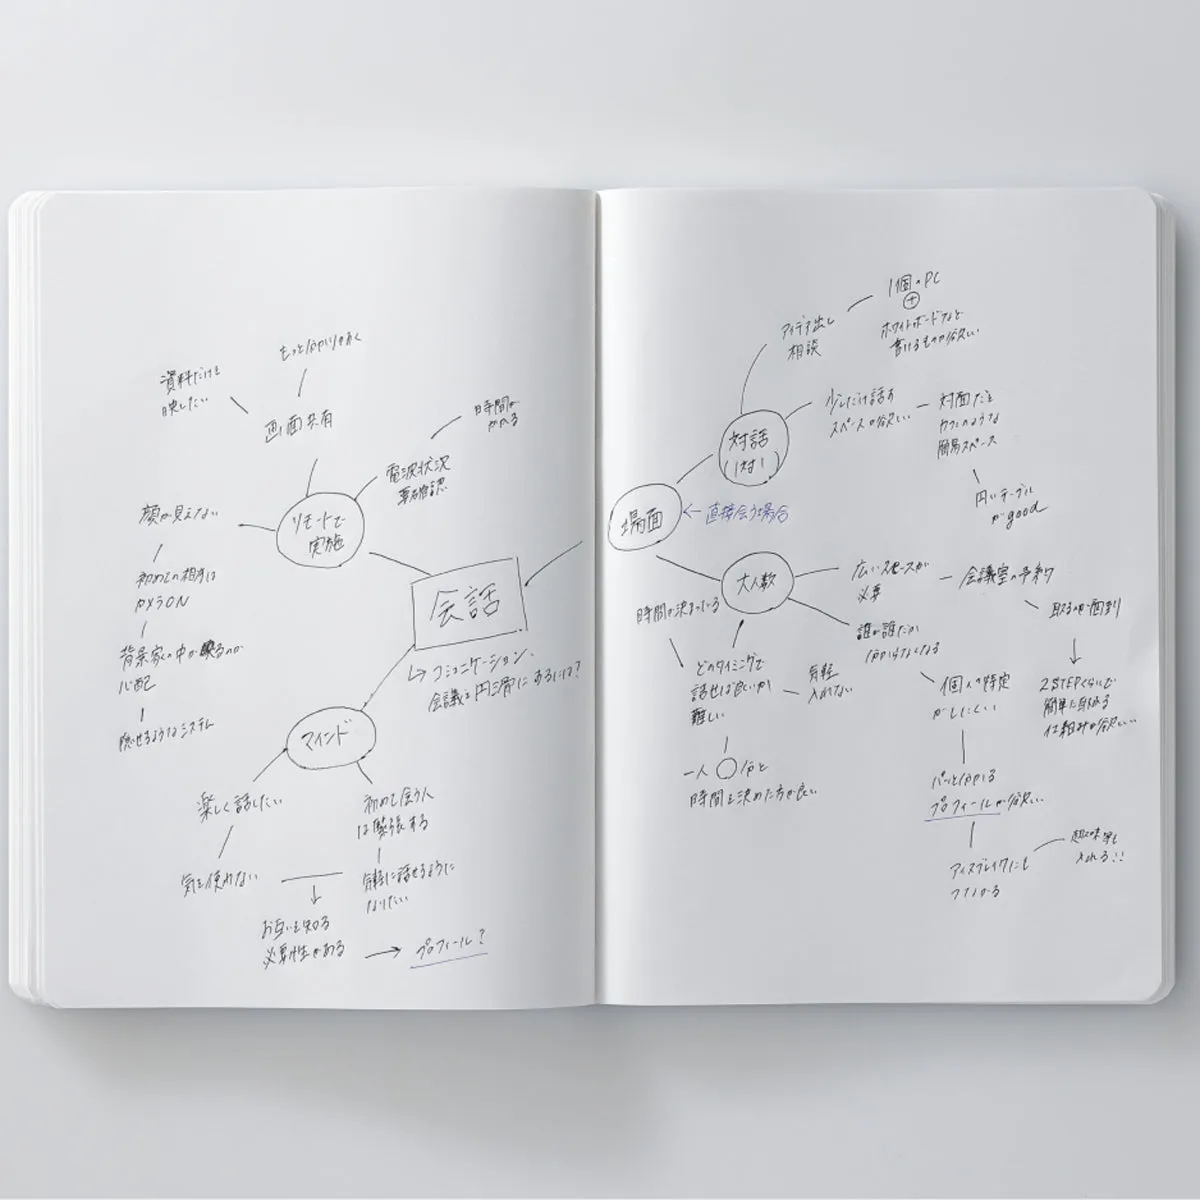 もっと分かりやすく
資料だけを
映したい
画面共有
時間が
かかる
電波状況
要確認
顔が見えない
リモートで
実施
初めての相手は
カメラON
背景家の中が映るのが
心配
隠せるようなシステム
会話
↳ コミュニケーション、
会議を円滑にするには?
マインド
楽しく話したい
初めて会う人
は緊張する
気を使わない
気軽に話せるように
なりたい
お互いを知る
必要性がある
プロフィール?
1個のPC
+
ホワイトボードなど
書けるものが欲しい
アイデア出し
相談
対話
(1対1)
少しだけ話す
スペースが欲しい
対面だと
カフェのような
簡易スペース
円いテーブル
がgood
場面
←直接会う場合
大人数
広いスペースが
必要
会議室の予約
取るのが面倒
2STEPくらいで
簡単に取れる
仕組みが欲しい
時間が決まっている
どのタイミングで
話せば良いか
難しい
一人〇分と
時間を決めた方が良い
誰が誰だか
分からなくなる
個人の特定
がしにくい
パッと分かる
プロフィールが欲しい
アイスブレイクにも
つながる
趣味等も
入れる!!